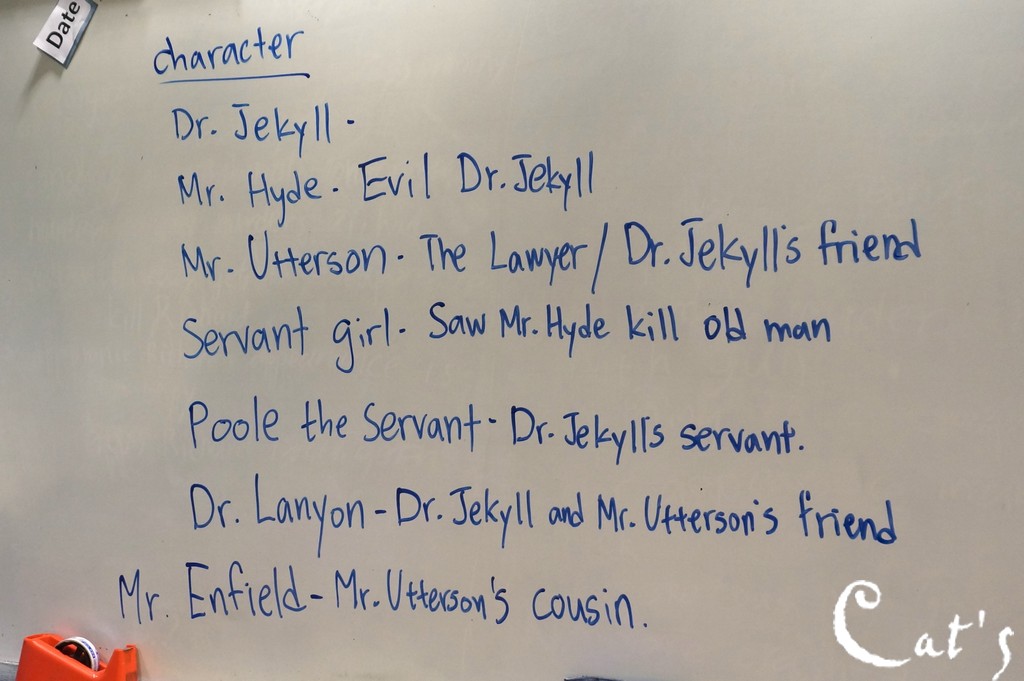 Date
character
Dr. Jekyll.
Mr. Hyde. Evil Dr. Jekyll
Mr. Utterson. The Lawyer / Dr. Jekyll's friend
Servant girl. Saw Mr. Hyde kill old man
Poole the Servant - Dr. Jekyll's servant.
Dr. Lanyon - Dr. Jekyll and Mr. Utterson's friend
Mr. Enfield - Mr. Utterson's cousin.
Cat's